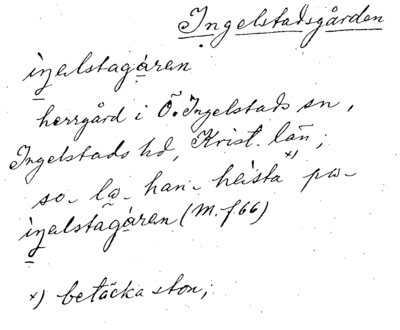 Ingelstadsgården
iŋəlstagåran
herrgård i Ö. Ingelstads sn,
Ingelstads hd, Krist. län;
so- la- han- heista x) pa-
iŋəlstagåran (M. f. 66)
x) betäcka ston;